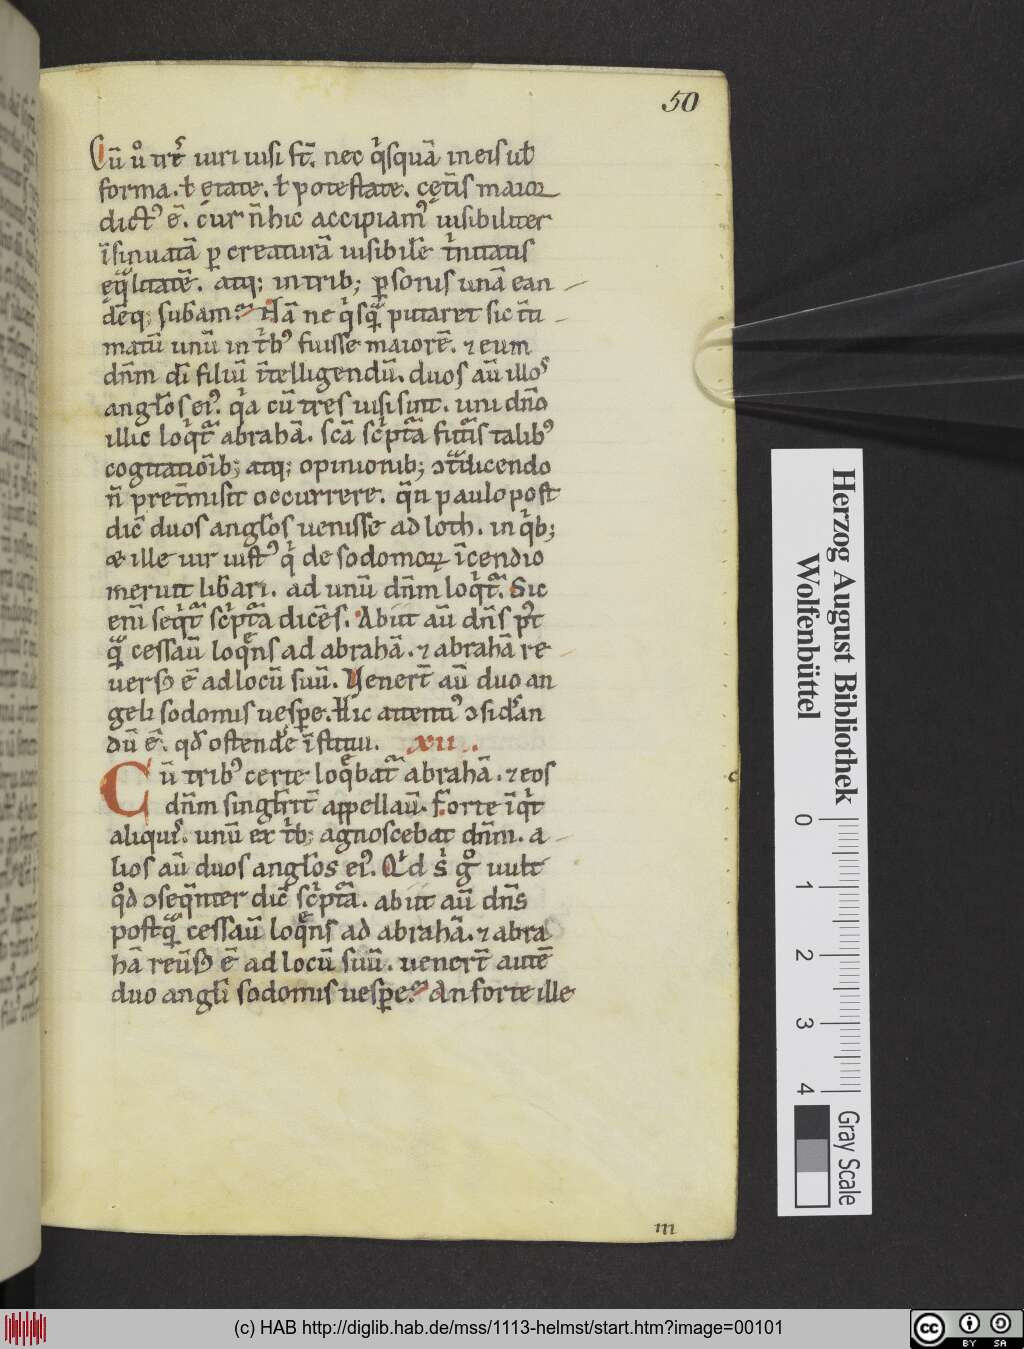 50
Cū ů trēs uiri uisi st̄. nec q̇squā in eis uł
forma. ł etate. ł potestate. cet̄is maior
dict᾿ ē. cur n̄ hic accipiam᾿ uisibiliter
īsinuatā p̲ creaturā uisibilē t̍nitatis
eq̄litatē. atq; in trib; p̲sonis unā ean
dēq; sub̄am? Nā ne q̍sq̄ putaret sic īti
matū unū in t̍b᾿ fuisse maiorē. ⁊ eum
dn̄m di̅ filiū ītelligendū. duos aū illos
angłos ei᾿. q̍a cū tres uisi sint. uni dn̄o
illic loq̍t̄ abrahā. sc̄a sc̍ptā futu̅is talib᾿
cogitatiōib; atq; opinionib; ɔt̄dicendo
n̄ pret̄misit occurrere. q̄n paulo post
dic̄ duos angłos uenisse ad loth. in q̍b;
⁊ ille uir iust᾿ q̍ de sodomoꝝ īcendio
meruit lib̄ari. ad unū dn̄m loq̍t̄. Sic
eni̅ seq̍t̄ sc̍ptā dicēs. Abiit aū dn̄s p᾿t
q̄ cessaū loq̄ns ad abrahā. ⁊ abrahā re
uersꝰ ē ad locū suū. Venert̄ aū duo an
geli sodomis uesp̲e. Hic attenti᾿ ɔsid̄an
dū ē. qd̄ ostend̄e īstitui. xii.
Cū trib᾿ certe loq̄bat̄ abrahā. ⁊ eos
dn̄m singłrit̄ appellaū. Forte īq̍t
aliquis. unū ex t̍b; agnoscebat dn̄m. a
lios aū duos angłos ei᾿. Q̍d s̍ gͦ uult
qͦd ɔseq̄nter dic̄ sc̍ptā. abiit aū dn̄s
postq̄ cessaū loq̄ns ad abrahā. ⁊ abra
hā reūsꝰ ē ad locū suū. uenert̄ autē
duo angłi sodomis uesp̲e? An forte ille
m
Herzog August Bibliothek
Wolfenbüttel
0 1 2 3 4
Gray Scale
(c) HAB http://diglib.hab.de/mss/1113-helmst/start.htm?image=00101
cc BY SA